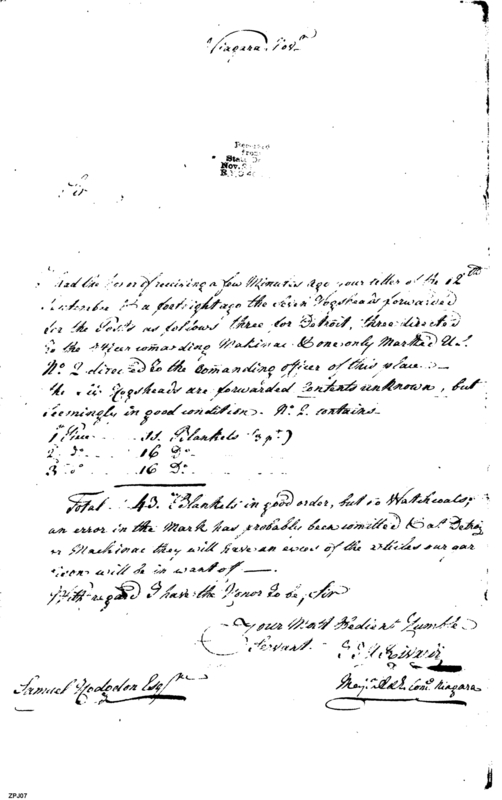 Niagara
Received
from
State De
Nov.
Sir
had the honor of receiving a few Minutes ago your letter of the 12th
Septembre a fortnight ago the Seven Hogsheads forwarded
for the Posts as follows three for Detroit, three directed
to the officer comanding Makinac & one only Marked U.S.
No. 2 directed to the Comanding officer of this place
the Six Hogsheads are forwarded Contents unknown, but
Seemingly in good condition. No. 2. contains
1 11. Blankets (3 pt)
2 do 16 Do
3 do 16 Do
Total 43. Blankets in good order, but no Watchcoats;
an error in the Mark has probably been comitted & at Detroit
or Mackinac they will have an exces of the articles our gar
isons will be in want of
With regard I have the honor to be, Sir
your Most Obedient Humble
Servant.
J J U Rivardi
Samuel Hodgdon Esqre
Majr. A & E Comt Niagara
ZPJ07